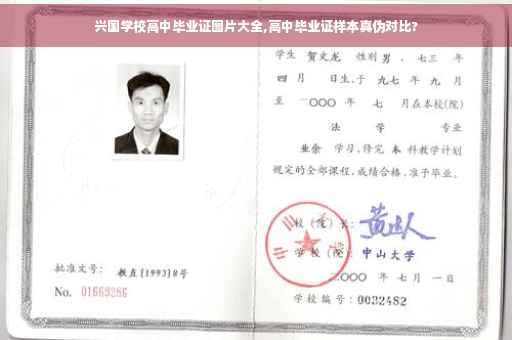 兴国学校高中毕业证图片大全,高中毕业证样本真伪对比?
学生 贺文龙 性别 男 、七三 年
四 月 日生,于 九七 年 九 月
至 二〇〇〇 年 七 月在本校(院)
法 学 专业
业余 学习,修完 本 科教学计划
规定的全部课程,成绩合格,准予毕业。
校(院)长:
学校(院): 中山大学
二〇〇〇 年 七 月 一 日
学校编号:0032482
批准文号: 教直[1993]8号
No. 01669286